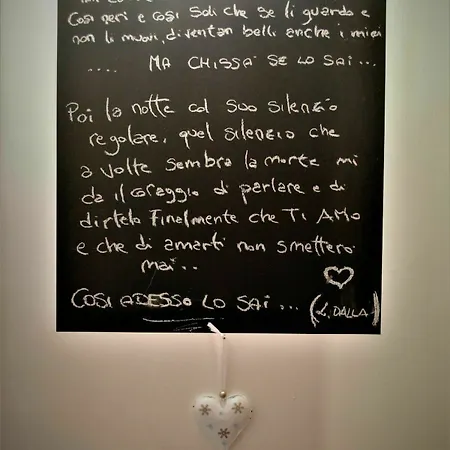 Così neri e così soli che se li guardo e
non li muovi, diventan belli anche i miei
.... MA CHISSÀ SE LO SAI ...
Poi la notte col suo silenzio
regolare, quel silenzio che
a volte sembra la morte mi
da il coraggio di parlare e di
dirtelo finalmente che TI AMO
e che di amarti non smetterò
mai..
COSÌ ADESSO LO SAI ... (L. DALLA)